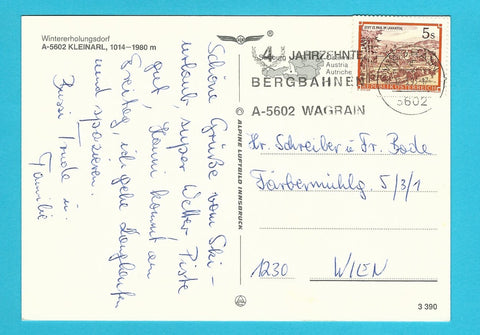 Wintererholungsdorf
A-5602 KLEINARL, 1014-1980 m
Schöne Grüße vom Ski-
urlaub, super Wetter Piste
gut, Hanni kommt am
Freitag, ich gehe Langlaufen
und spazieren.
Bussi Trude u.
Familie
© ALPINE LUFTBILD INNSBRUCK
4 JAHRZEHNTE
Österreich
Austria
Autriche
BERGBAHNEN
A-5602 WAGRAIN
5602
5 S
REPUBLIK ÖSTERREICH
Hr. Schreiber u Fr. Bode
Färbermühlg. 5/3/1
1230 WIEN
3 390